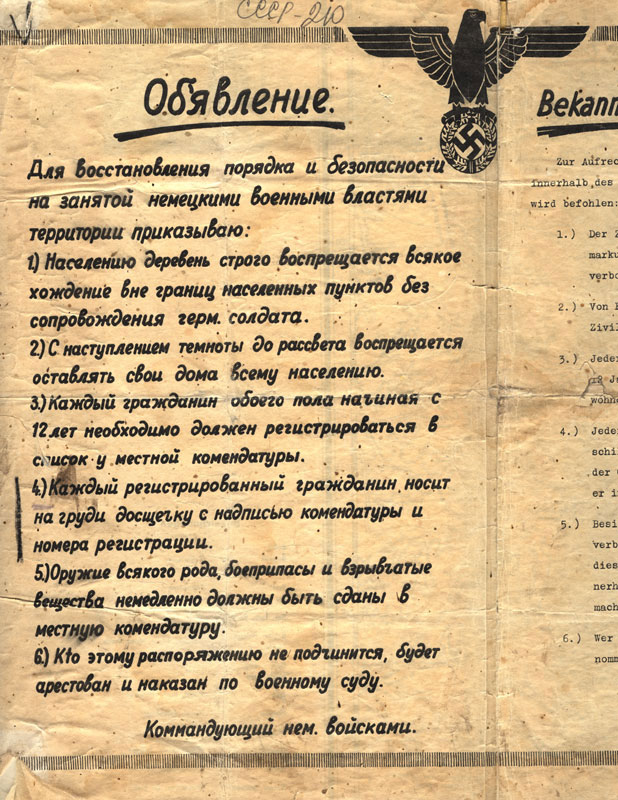 СССР-210
Обявление.
Для восстановления порядка и безопасности
на занятой немецкими военными властями
территории приказываю:
1.) Населению деревень строго воспрещается всякое
хождение вне границ населенных пунктов без
сопровождения герм. солдата.
2.) С наступлением темноты до рассвета воспрещается
оставлять свои дома всему населению.
3.) Каждый гражданин обоего пола начиная с
12 лет необходимо должен регистрироваться в
список у местной комендатуры.
4.) Каждый регистрированный гражданин носит
на груди досщечку с надписью комендатуры и
номера регистрации.
5.) Оружие всякого рода, боеприпасы и взрывчатые
вещества немедленно должны быть сданы в
местную комендатуру.
6.) Кто этому распоряжению не подчинится, будет
арестован и наказан по военному суду.
Коммандующий нем. войсками.
Bekann
Zur Aufrec
innerhalb des
wird befohlen:
1.) Der Z
marku
verbo
2.) Von
Zivil
3.) Jeder
Je
wohne
4.) Jeder
schin
der
er i
5.) Besi
verb
dies
nerh
mach
6.) Wer
nomm